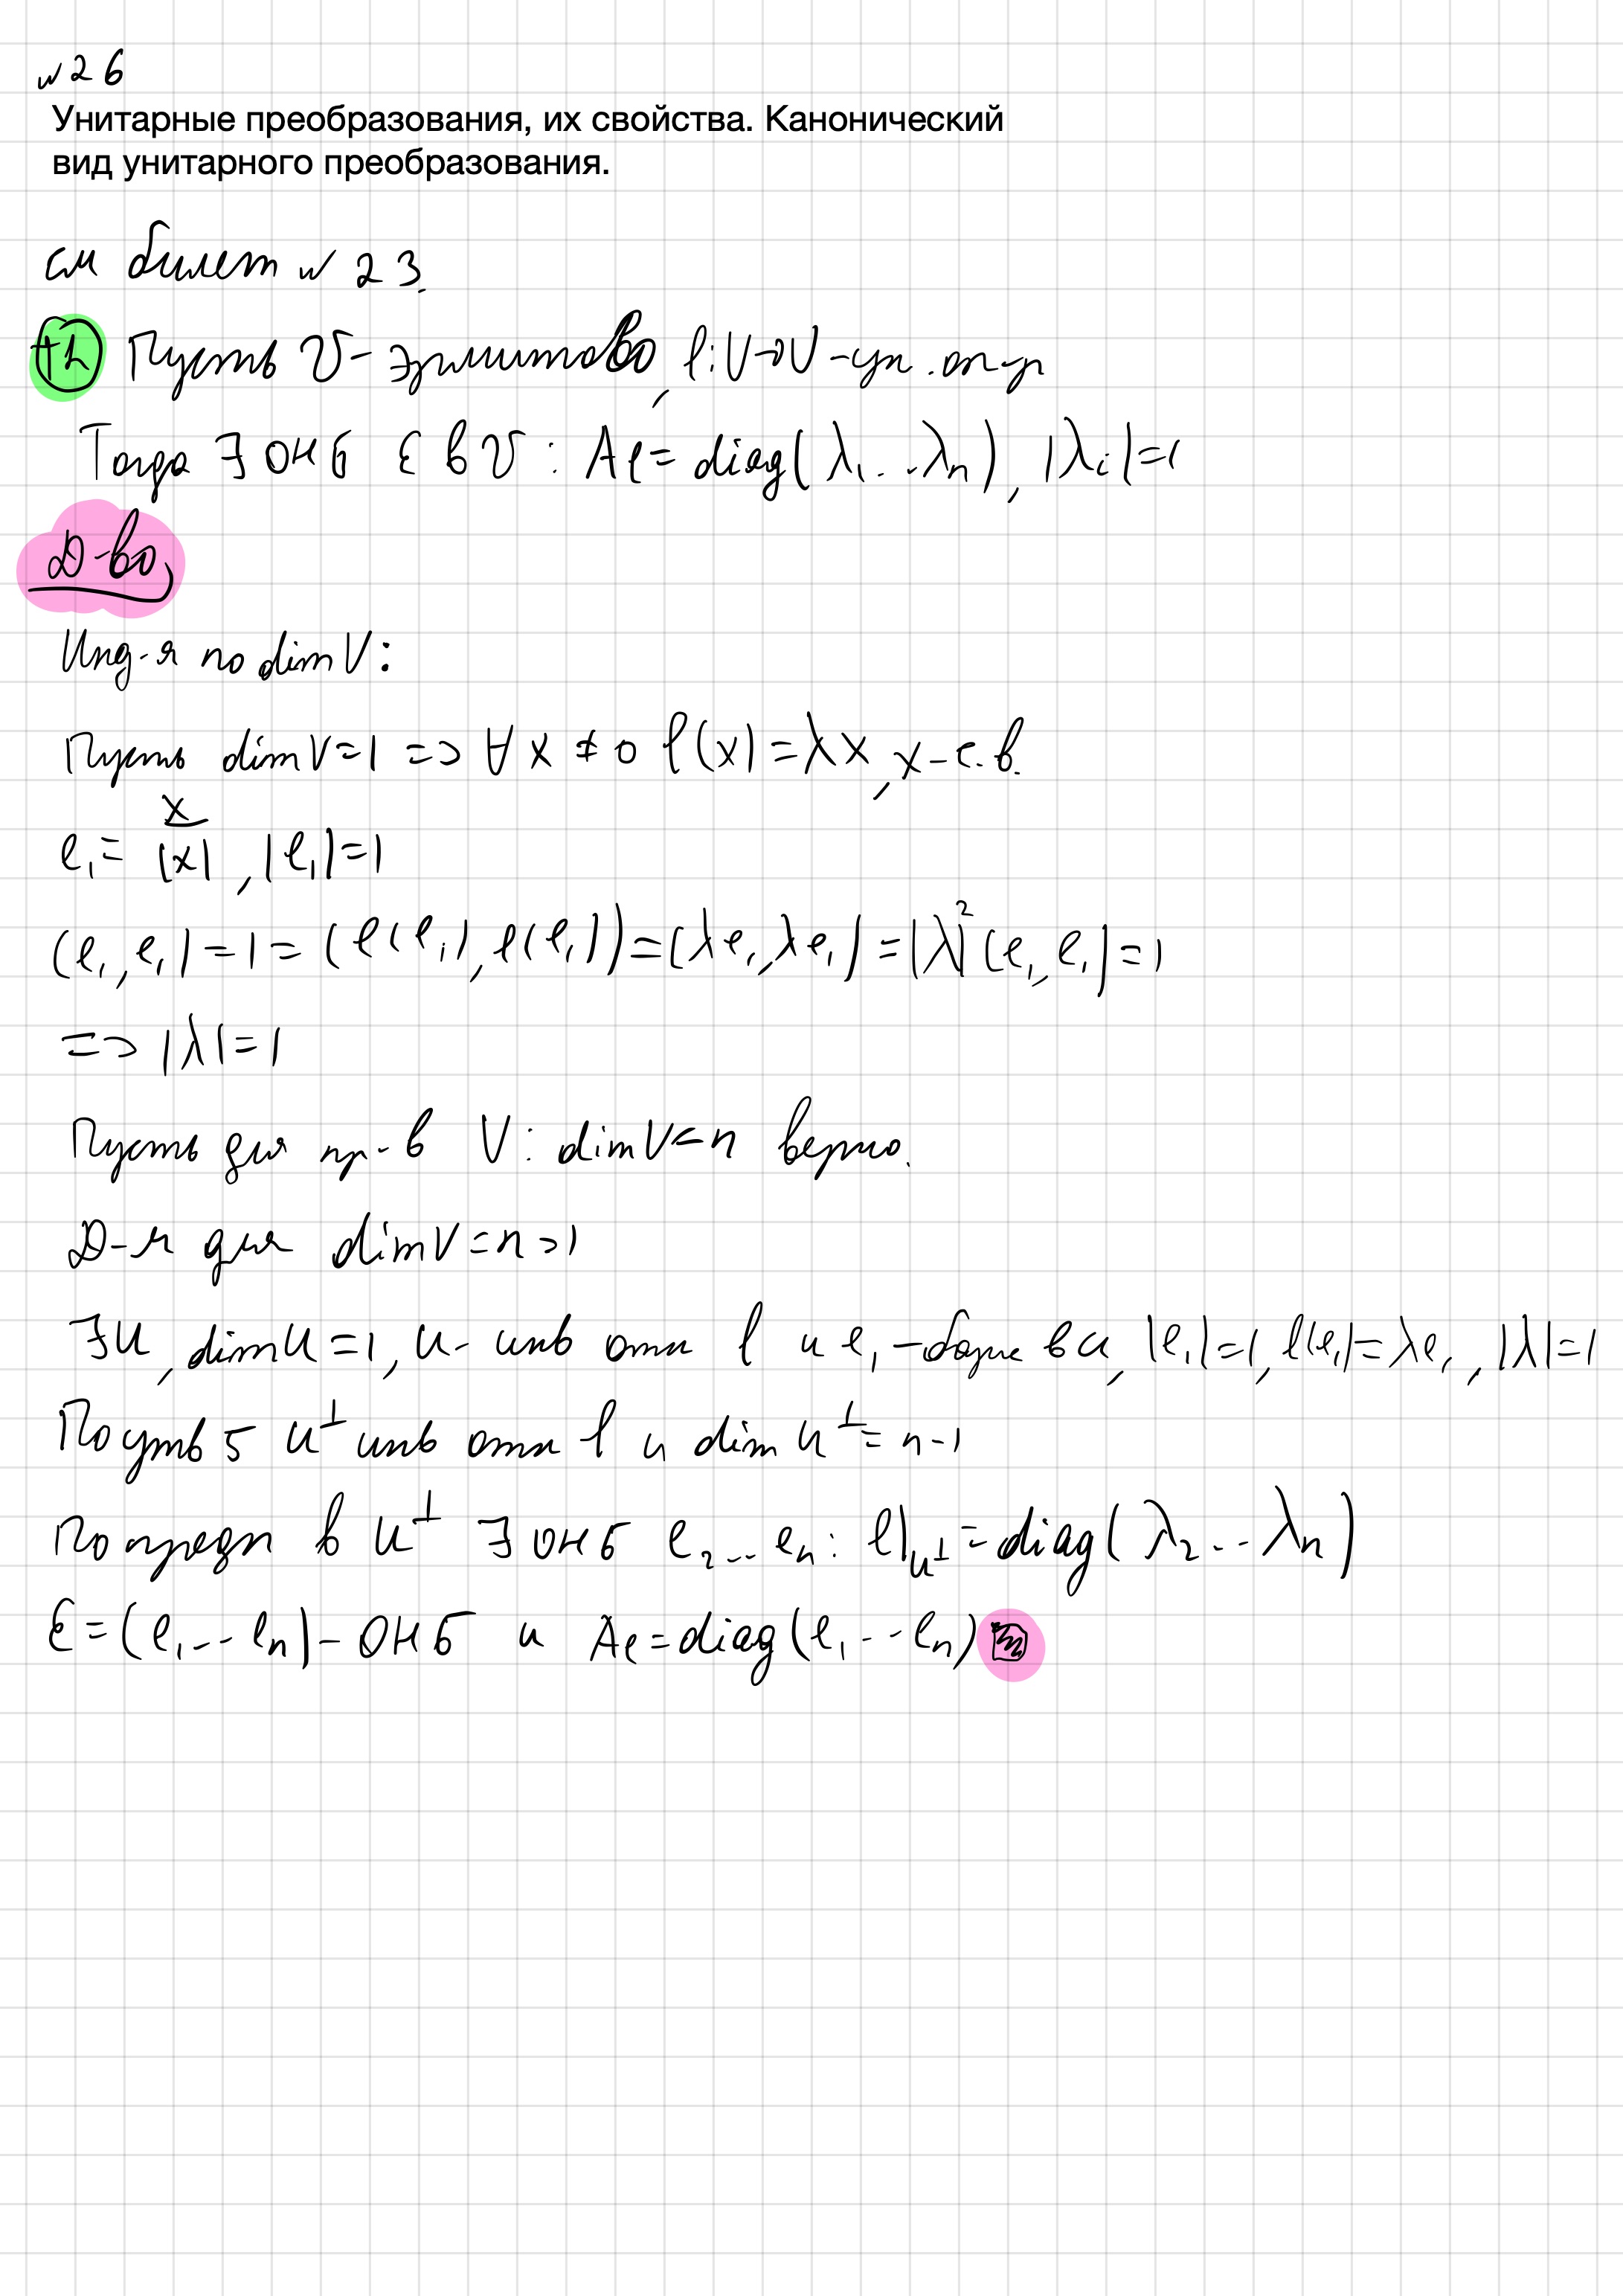 №26
Унитарные преобразования, их свойства. Канонический
вид унитарного преобразования.
см билет №23.
Т1 Пусть V - эрмитово, φ: V→V - ун. оп-р
Тогда ∃ ОНБ ℰ в V: Aφ = diag(λ₁...λₙ), |λᵢ|=1
Д-во
Инд-я по dim V:
Пусть dim V=1 => ∀x≠0 φ(x)=λx, x - с.в.
e₁ = x/|x|, |e₁|=1
(e₁, e₁)=1=(φ(e₁), φ(e₁))=(λe₁, λe₁)=|λ|²(e₁, e₁)=1
=> |λ|=1
Пусть для пр-в V: dim V<n верно.
Д-м для dim V=n>1
∃U, dim U=1, U - инв отн φ и e₁ - базис в U, |e₁|=1, φ(e₁)=λe₁, |λ|=1
По утв 5 U^⊥ инв отн φ и dim U^⊥=n-1
По предп в U^⊥ ∃ ОНБ e₂...eₙ: φ|_U^⊥=diag(λ₂...λₙ)
ℰ=(e₁...eₙ) - ОНБ и Aφ=diag(e₁...eₙ)